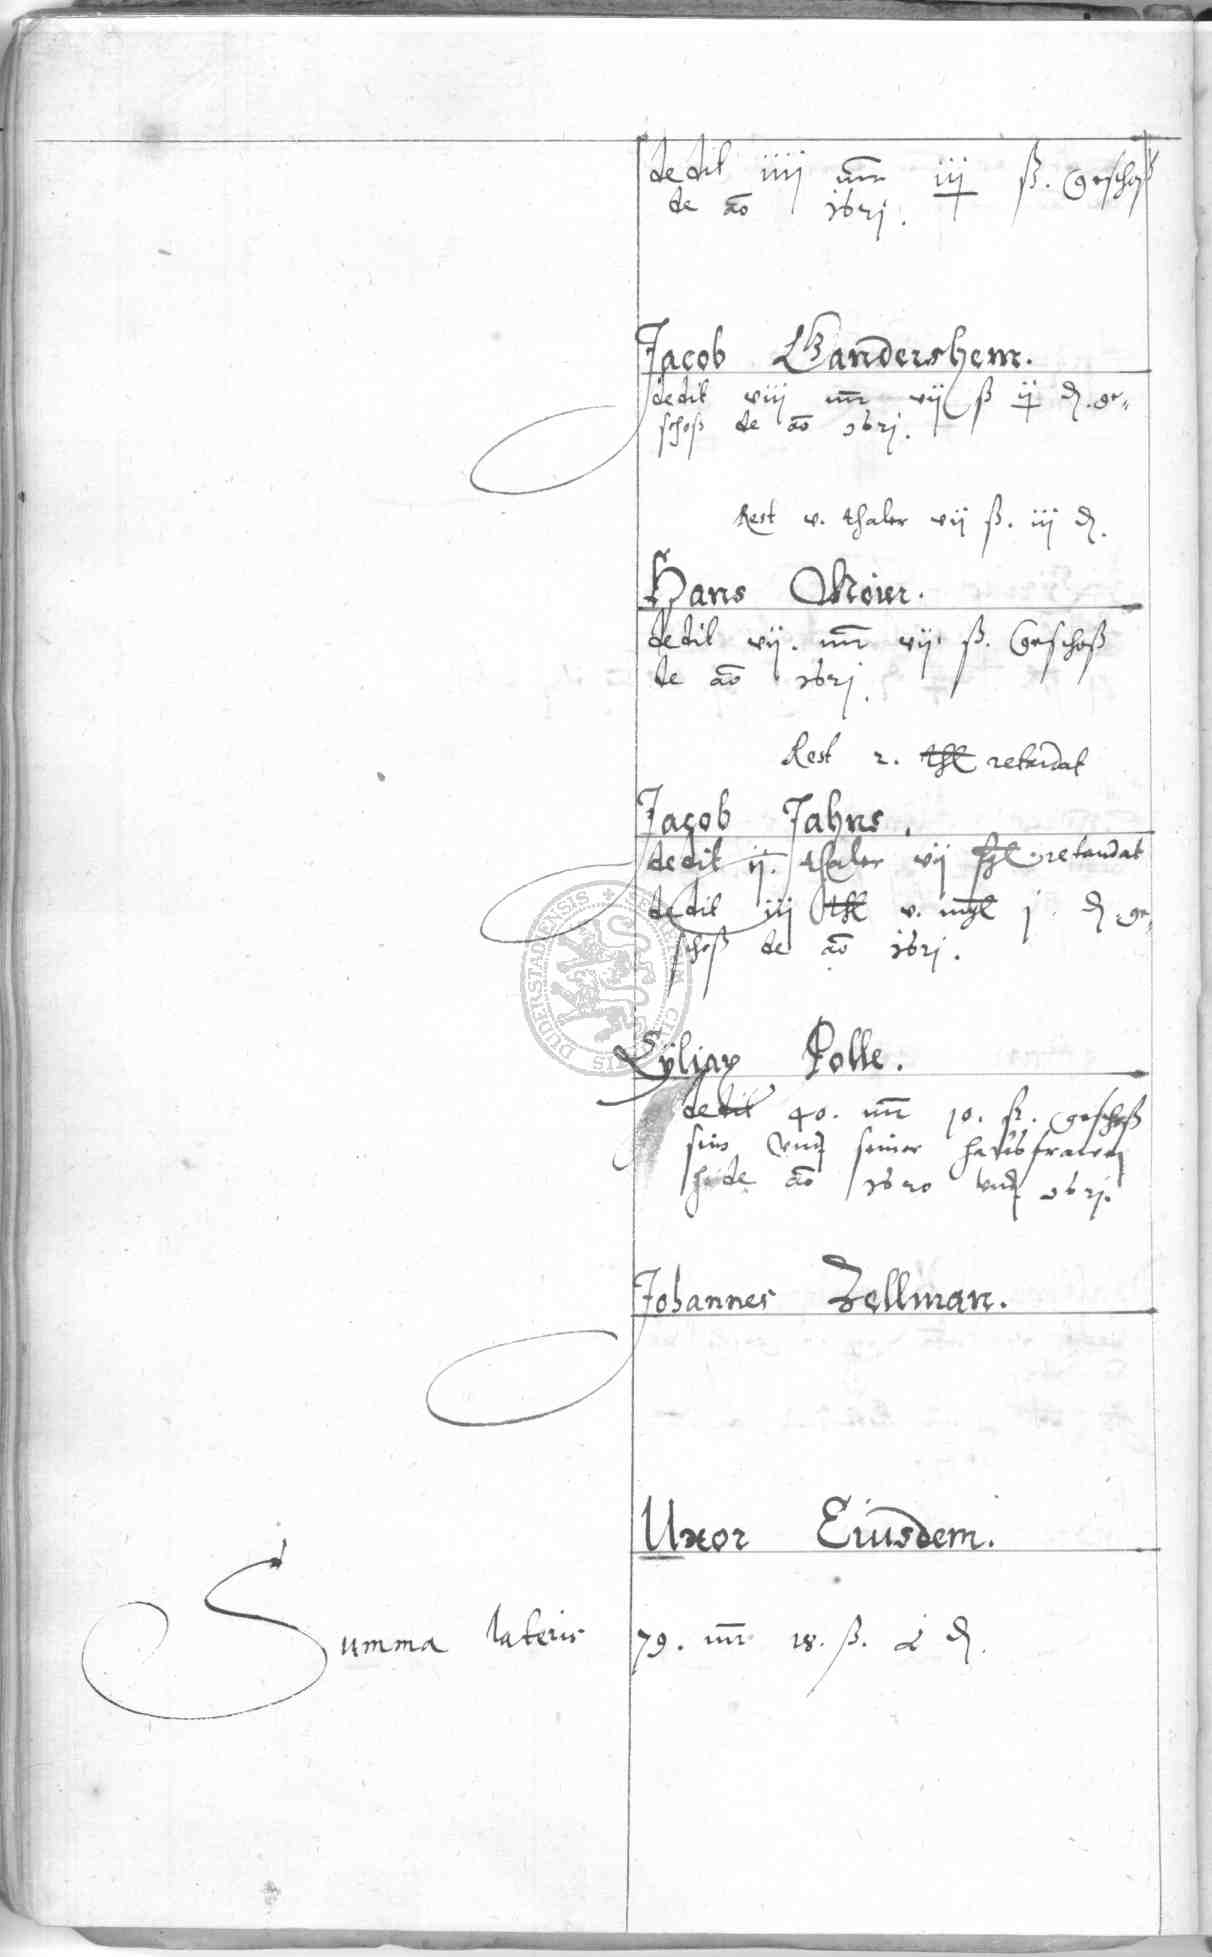 dedit iiij mr iij ß. Geschoß
de ao 1621.
Jacob Gandershem.
dedit viij mr vij ß ij ₰. ge-
schoß de ao 1621.
Rest v. thaler vij ß. iij ₰.
Hans Meier.
dedit vij. mr vij ß. Geschoß
de ao 1621.
Rest 2. thl retardat
Jacob Jahns.
dedit ij. thaler vij retardat
dedit iij thl v. mgl j ₰ ge-
schoß de ao 1621.
SIGILLUM CIVITATIS DUDERSTADIENSIS
Cyliax Polle.
dedit 40. mr 10. ß. geschoß
sins vnd seiner hausfrawen
de ao 1620 vnd 1621.
Johannes Zellman.
Uxor Eiusdem.
Summa lateris 79. mr 18. ß. ₰.